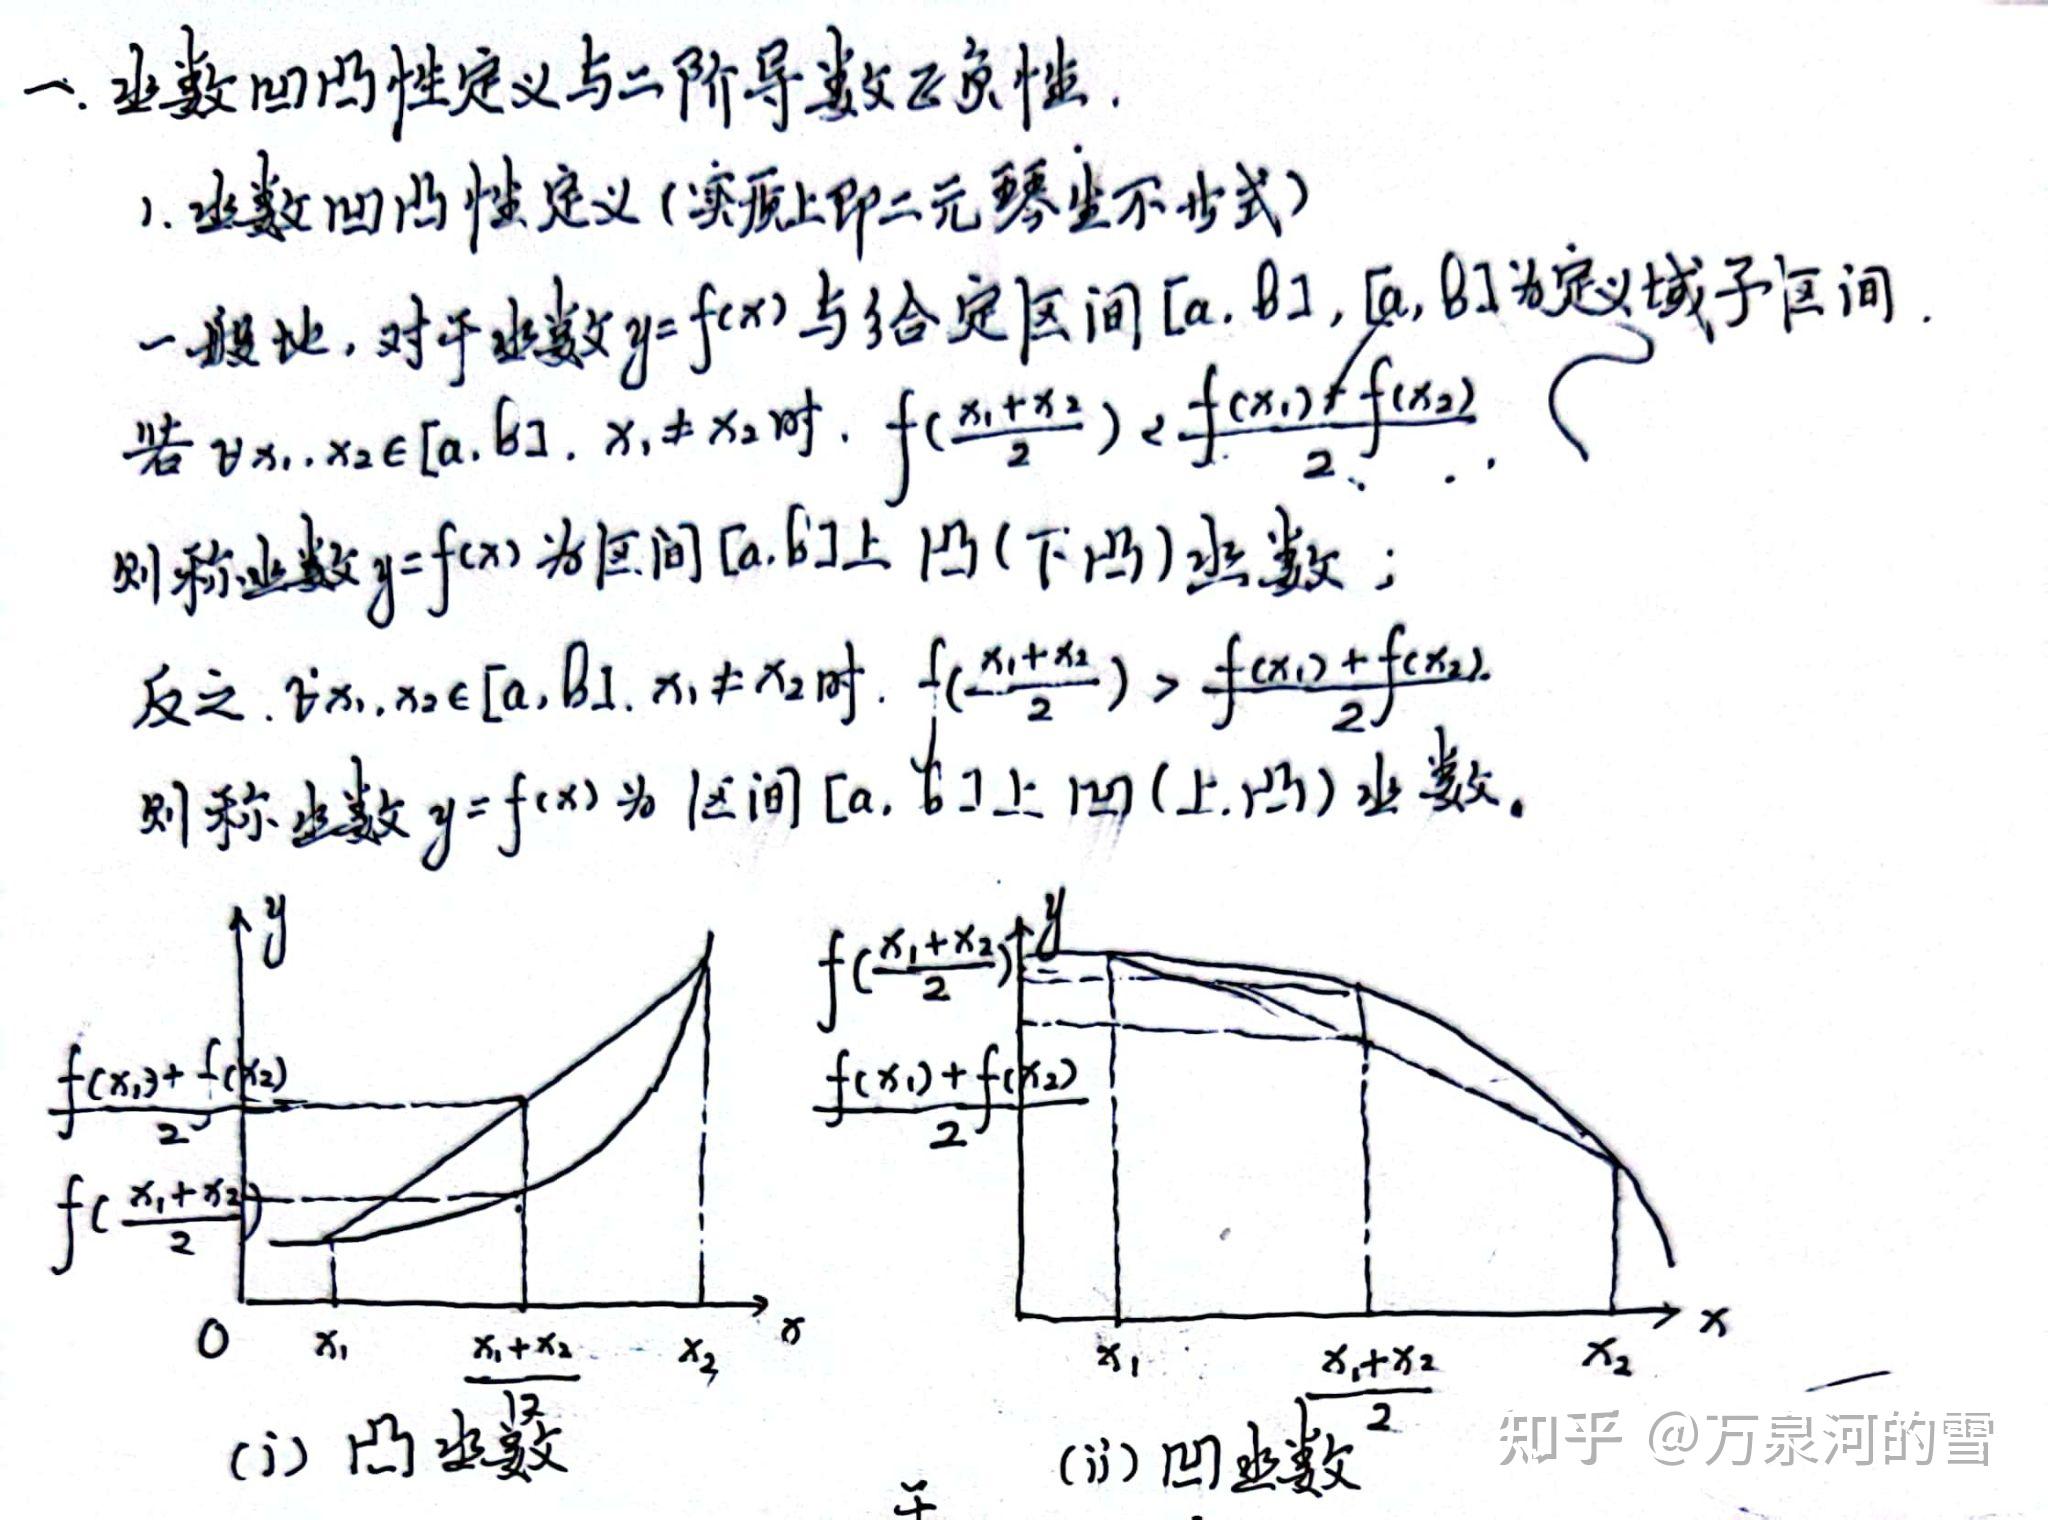 一.函数凹凸性定义与二阶导数正负性.
1.函数凹凸性定义(实质上即二元琴生不等式)
一般地,对于函数y=f(x)与给定区间[a,b],[a,b]为定义域子区间.
若∀x₁,x₂∈[a,b].x₁≠x₂时.f((x₁+x₂)/2)<(f(x₁)+f(x₂))/2.
则称函数y=f(x)为区间[a,b]上凸(下凸)函数;
反之.∀x₁,x₂∈[a,b].x₁≠x₂时.f((x₁+x₂)/2)>(f(x₁)+f(x₂))/2.
则称函数y=f(x)为区间[a,b]上凹(上凸)函数。
y
(f(x₁)+f(x₂))/2
f((x₁+x₂)/2)
O x₁ (x₁+x₂)/2 x₂ x
(i) 凸函数
y
f((x₁+x₂)/2)
(f(x₁)+f(x₂))/2
x₁ (x₁+x₂)/2 x₂ x
(ii) 凹函数
知乎 @万泉河的雪